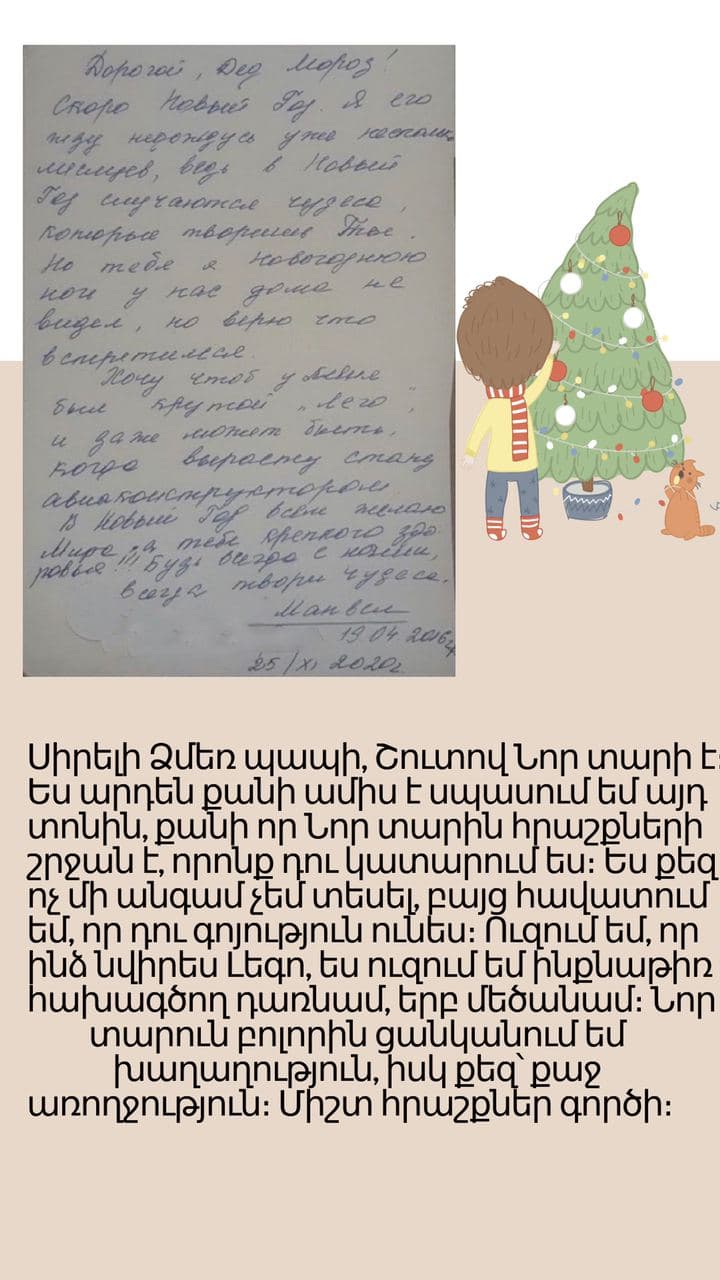 Дорогой, Дед Мороз!
Скоро Новый Год. Я его
жду недождусь уже несколь
месяцев, ведь в Новый
Год случаются чудеса,
которые творишь Ты.
Но тебя я Новогоднюю
ночь у нас дома не
видел, но верю что
встретимся.
Хочу чтоб у меня
был крутой „Лего",
и даже может быть,
когда вырасту стану
авиаконструктором.
В Новый Год всем желаю
Мира, а тебе крепкого здо
ровья!!! Будь всегда с нами,
всегда твори чудеса.
Манвел
19 04 2016г
25/XI 2020г.
Սիրելի Ձմեռ պապի, Շուտով Նոր տարի է։
Ես արդեն քանի ամիս է սպասում եմ այդ
տոնին, քանի որ Նոր տարին հրաշքների
շրջան է, որոնք դու կատարում ես։ Ես քեզ
ոչ մի անգամ չեմ տեսել, բայց հավատում
եմ, որ դու գոյություն ունես։ Ուզում եմ, որ
ինձ նվիրես Լեգո, ես ուզում եմ ինքնաթիռ
հախագծող դառնամ, երբ մեծանամ։ Նոր
տարուն բոլորին ցանկանում եմ
խաղաղություն, իսկ քեզ՝ քաջ
առողջություն։ Միշտ հրաշքներ գործի։